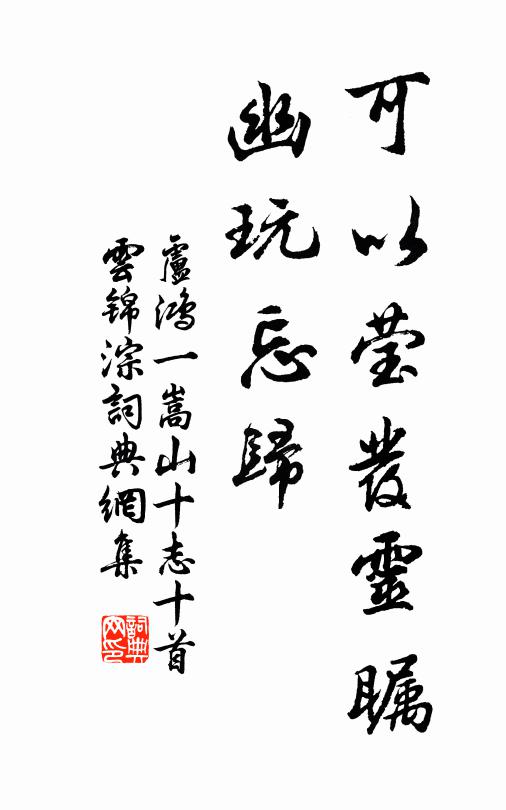 可以莹發靈瞩
幽玩忘歸
盧鴻一嵩山十志十首
雲錦淙詞典網集
詞典网印